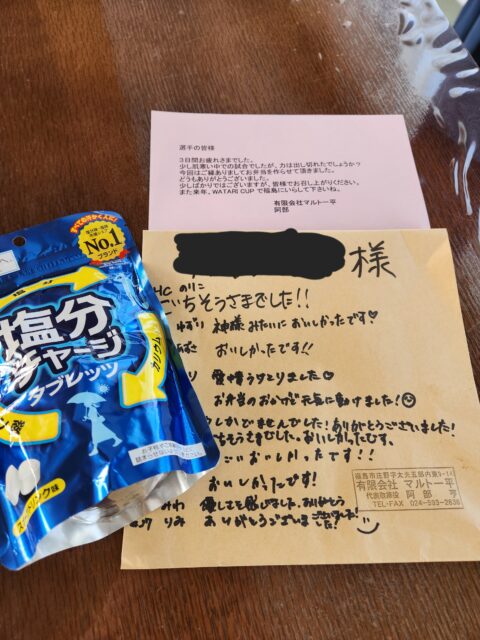 選手の皆様
3日間お疲れさまでした。
少し肌寒い中での試合でしたが、力は出し切れたでしょうか?
今回はご縁ありましてお弁当を作らせて頂きました。
どうもありがとうございました。
少しばかりではございますが、皆様でお召し上がりください。
また来年、WATARI CUPで福島にいらして下さいね。
有限会社マルト一平
阿部
様
のりこ
ごちそうさまでした!!
神様みたいにおいしかったです♡
おいしかったです!!
愛情うけとりました
お弁当のおかげで元気に動けました!
ありがとうございました!
おいしかったです。
おいしかったです!!
おいしかったです!
みわ
りみ
No.1
ブランド
塩分
チャージ
タブレッツ
カリウム
スポーツドリンク味
有限会社 マルト一平
代表取締役 阿部 亨
TEL・FAX 024-593-2836